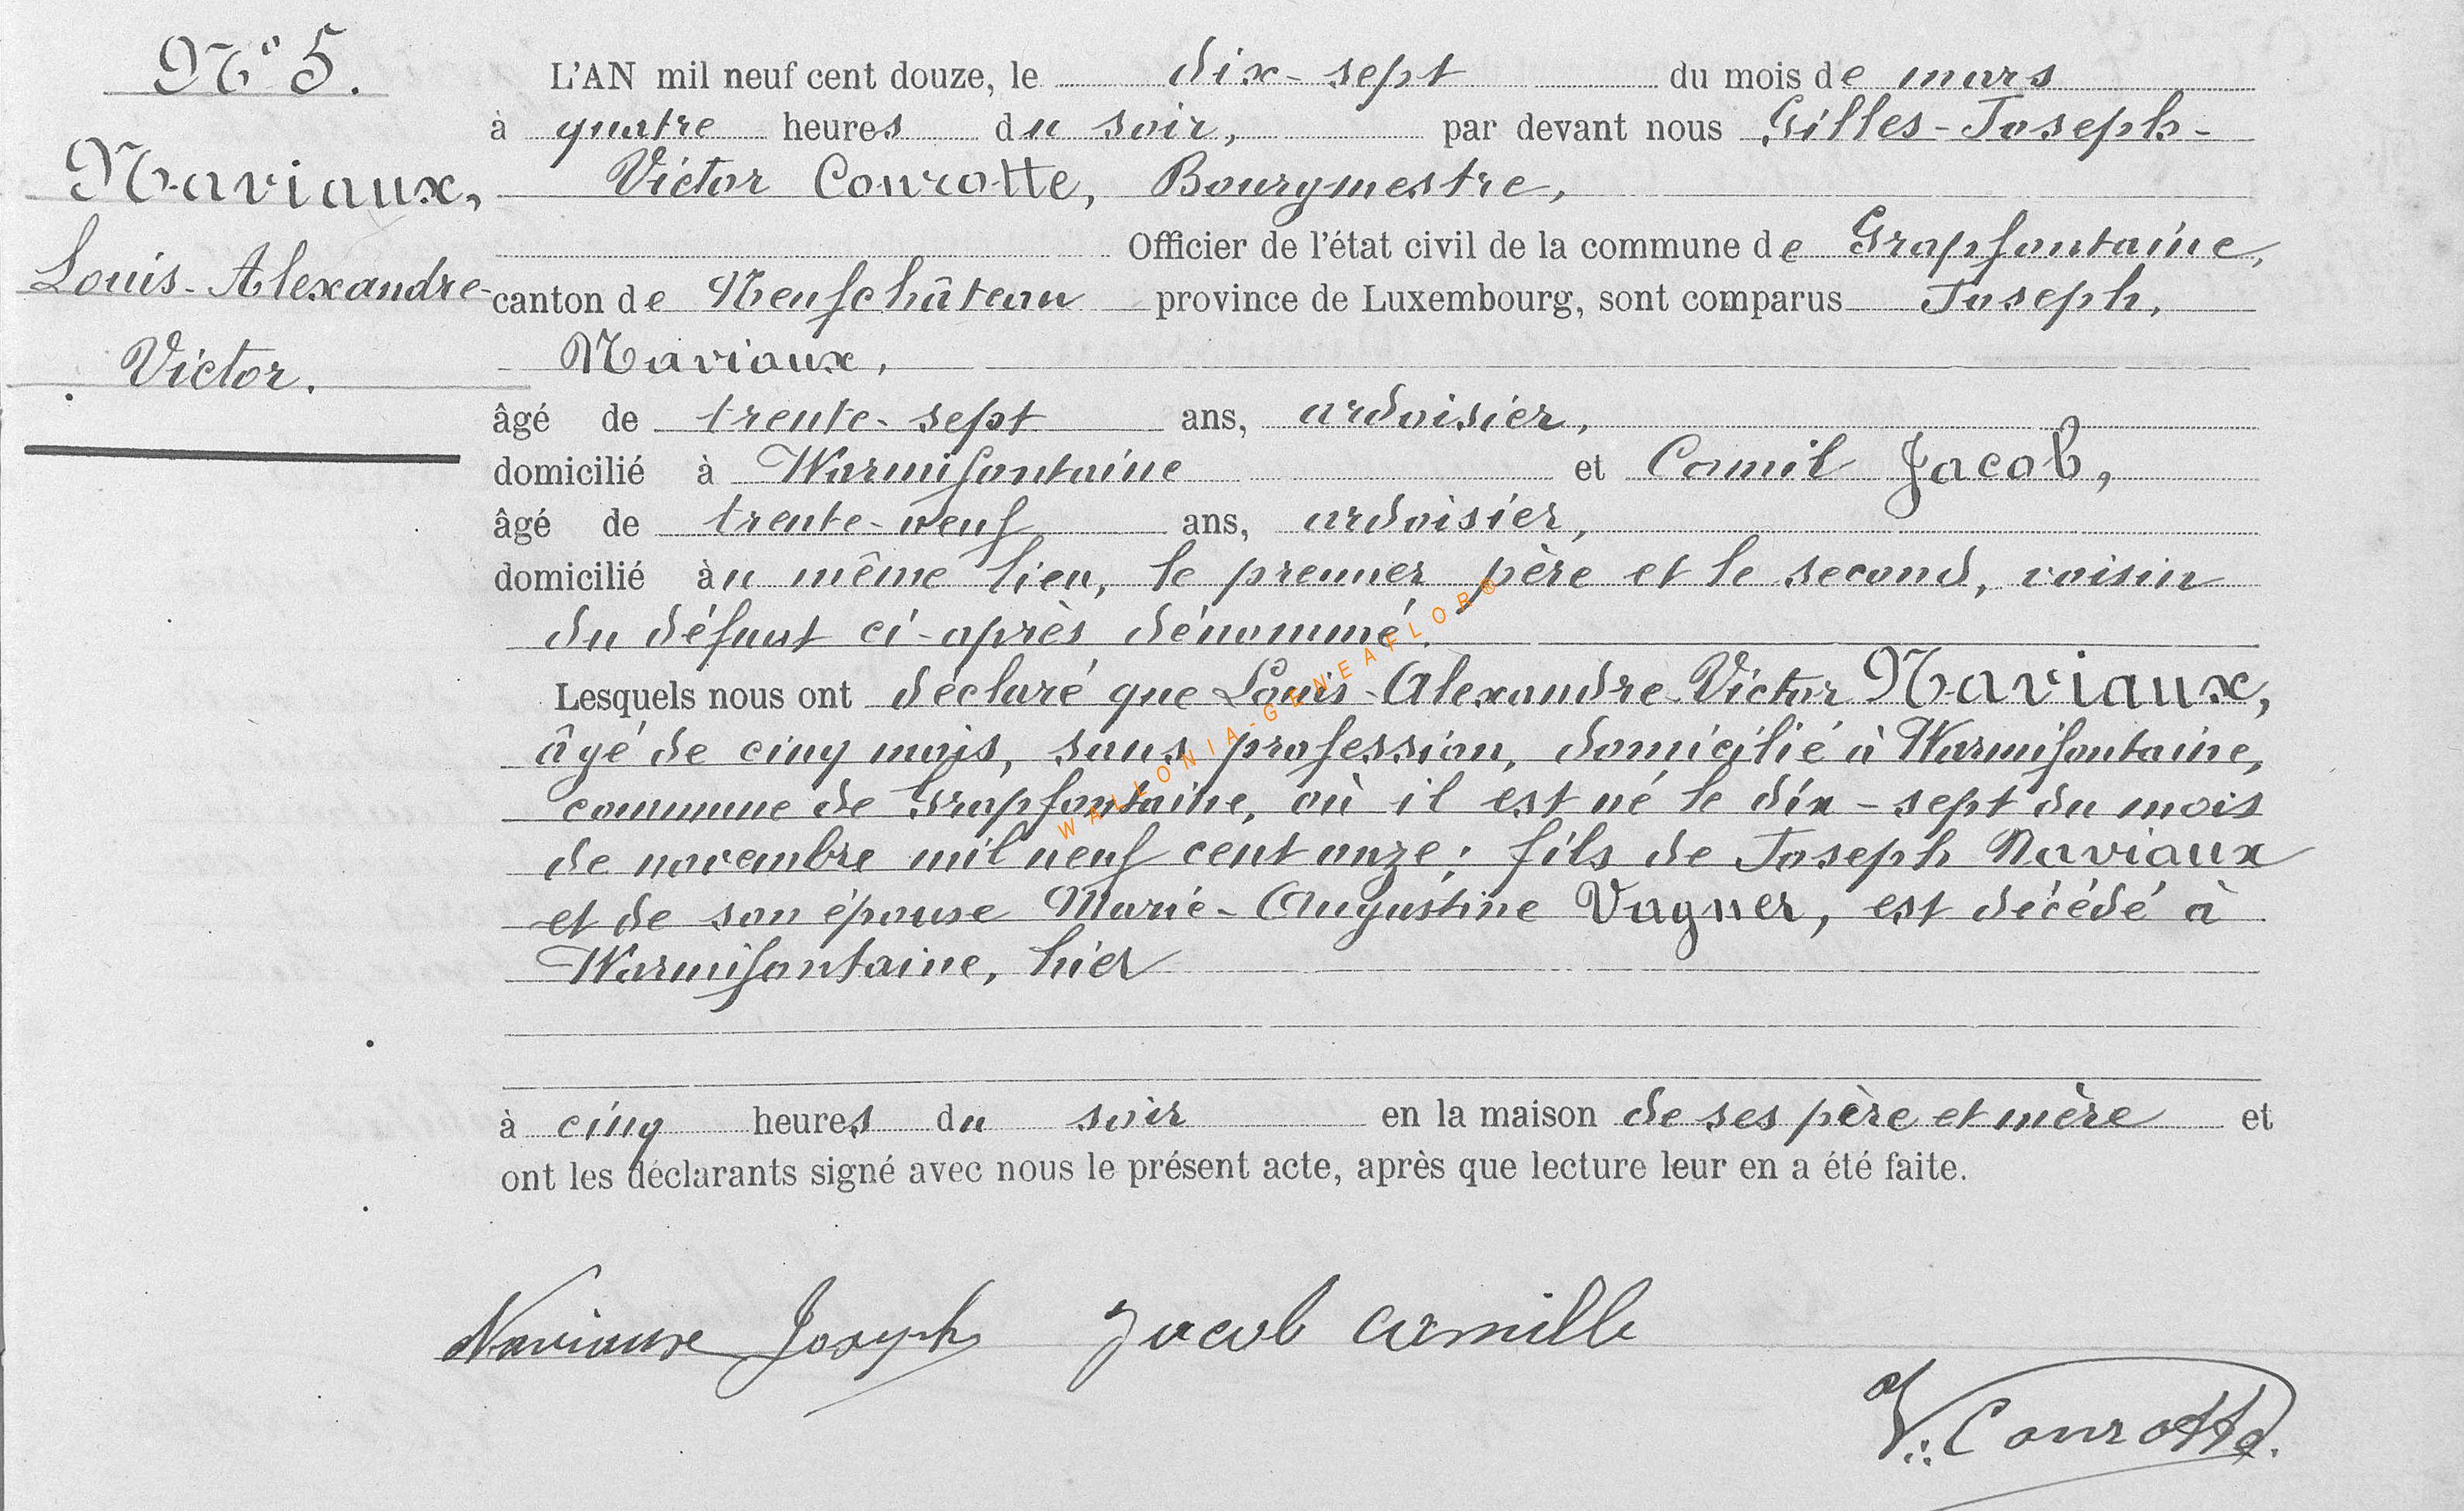 N° 5.
Naviaux,
Louis-Alexandre-
Victor.
L'AN mil neuf cent douze, le dix-sept du mois de mars
à quatre heures du soir, par devant nous Gilles-Joseph-
Victor Conrotte, Bourgmestre,
Officier de l'état civil de la commune de Grapfontaine,
canton de Neufchâteau province de Luxembourg, sont comparus Joseph,
Naviaux,
âgé de trente-sept ans, ardoisier,
domicilié à Warmifontaine et Camil Jacob,
âgé de trente-neuf ans, ardoisier,
domicilié au même lieu, le premier père et le second, voisin
du défunt ci-après dénommé.
Lesquels nous ont déclaré que Louis-Alexandre-Victor Naviaux,
âgé de cinq mois, sans profession, domicilié à Warmifontaine,
commune de Grapfontaine, où il est né le dix-sept du mois
de novembre mil neuf cent onze; fils de Joseph Naviaux
et de son épouse Marie-Augustine Vagner, est décédé à
Warmifontaine, hier
à cinq heures du soir en la maison de ses père et mère et
ont les déclarants signé avec nous le présent acte, après que lecture leur en a été faite.
Naviaux Joseph Jacob Camille
V. Conrotte.
WALLONIA-GENEAFLOR®